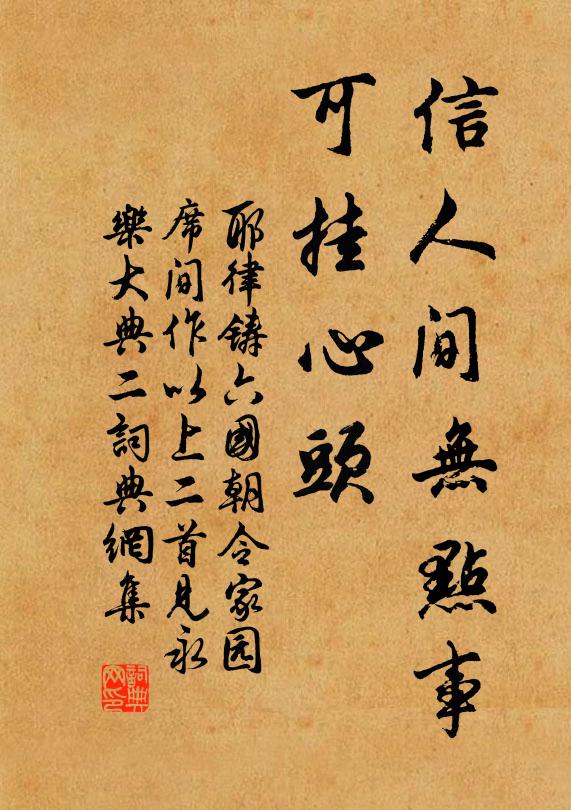 信人間無點事
可挂心頭
耶律鑄六國朝令家园
席间作以上二首見永
樂大典二詞典網集
詞典網印